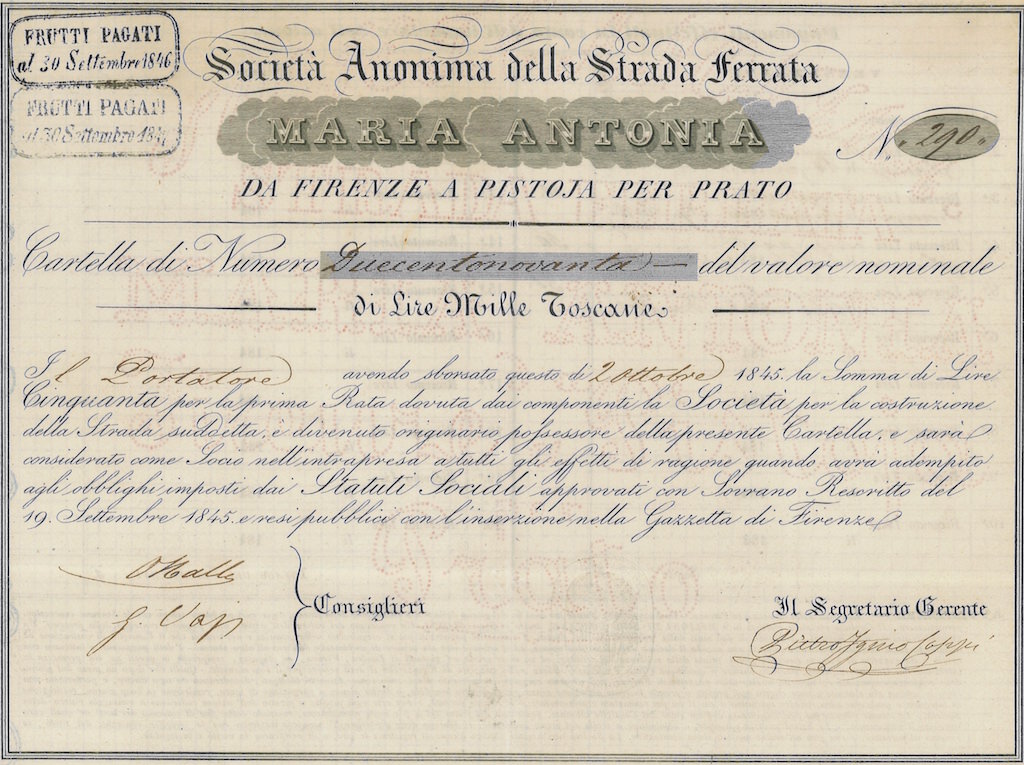 FRUTTI PAGATI
al 30 Settembre 1846
FRUTTI PAGATI
al 30 Settembre
Società Anonima della Strada Ferrata
MARIA ANTONIA
N. 290.
DA FIRENZE A PISTOJA PER PRATO
Cartella di Numero Duecentonovanta del valore nominale
di Lire Mille Toscane
Il Portatore avendo sborsato questo di 2 Ottobre 1845. la Somma di Lire
Cinquanta per la prima Rata dovuta dai componenti la Società per la costruzione
della Strada suddetta, e divenuto originario possessore della presente Cartella, e sarà
considerato come Socio nell'intrapresa a tutti gli effetti di ragione quando avrà adempito
agli obblighi imposti dai Statuti Sociali approvati con Sovrano Rescritto del
19. Settembre 1845. e resi pubblici con l'inserzione nella Gazzetta di Firenze
Consiglieri
Il Segretario Gerente
Pietro Igino Coppi